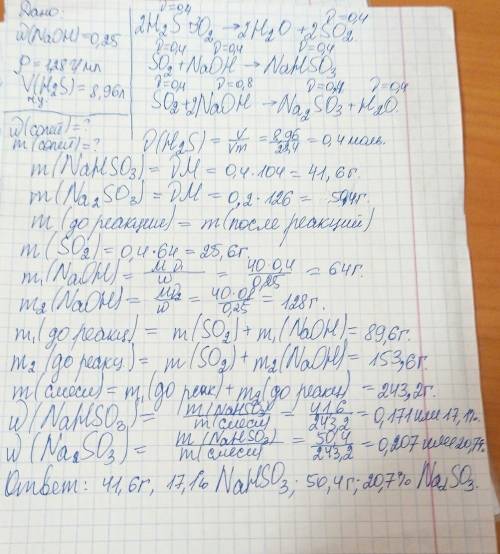 Дано
ω(NaOH)=0,25
ρ=1,28 г/мл
V(H₂S)=8,96л
н.у.
ω(солей)=?
m(солей)=?
ν=0,4 ν=0,4
2H₂S+3O₂→2H₂O+2SO₂
ν=0,4 ν=0,4 ν=0,4
SO₂+NaOH→NaHSO₃
ν=0,4 ν=0,8 ν=0,4 ν=0,4
SO₂+2NaOH→Na₂SO₃+H₂O
ν(H₂S)=V/Vm=8,96/22,4=0,4 моль.
m(NaHSO₃)=νM=0,4·104=41,6г.
m(Na₂SO₃)=νM=0,2·126=50,4г.
m(до реакции)=m(после реакций)
m(SO₂)=0,4·64=25,6г.
m₁(NaOH)=Mν₁/ω=40·0,4/0,25=64г.
m₂(NaOH)=Mν₂/ω=40·0,8/0,25=128г.
m₁(до реакц.)=m(SO₂)+m₁(NaOH)=89,6г.
m₂(до реакц.)=m(SO₂)+m₂(NaOH)=153,6г.
m(смеси)=m₁(до реак)+m₂(до реакц)=243,2г.
ω(NaHSO₃)=m(NaHSO₃)/m(смеси)=41,6/243,2=0,171 или 17,1%
ω(Na₂SO₃)=m(NaHSO₃)/m(смеси)=50,4/243,2=0,207 или 20,7%
Ответ: 41,6г, 17,1% NaHSO₃; 50,4г; 20,7% Na₂SO₃.